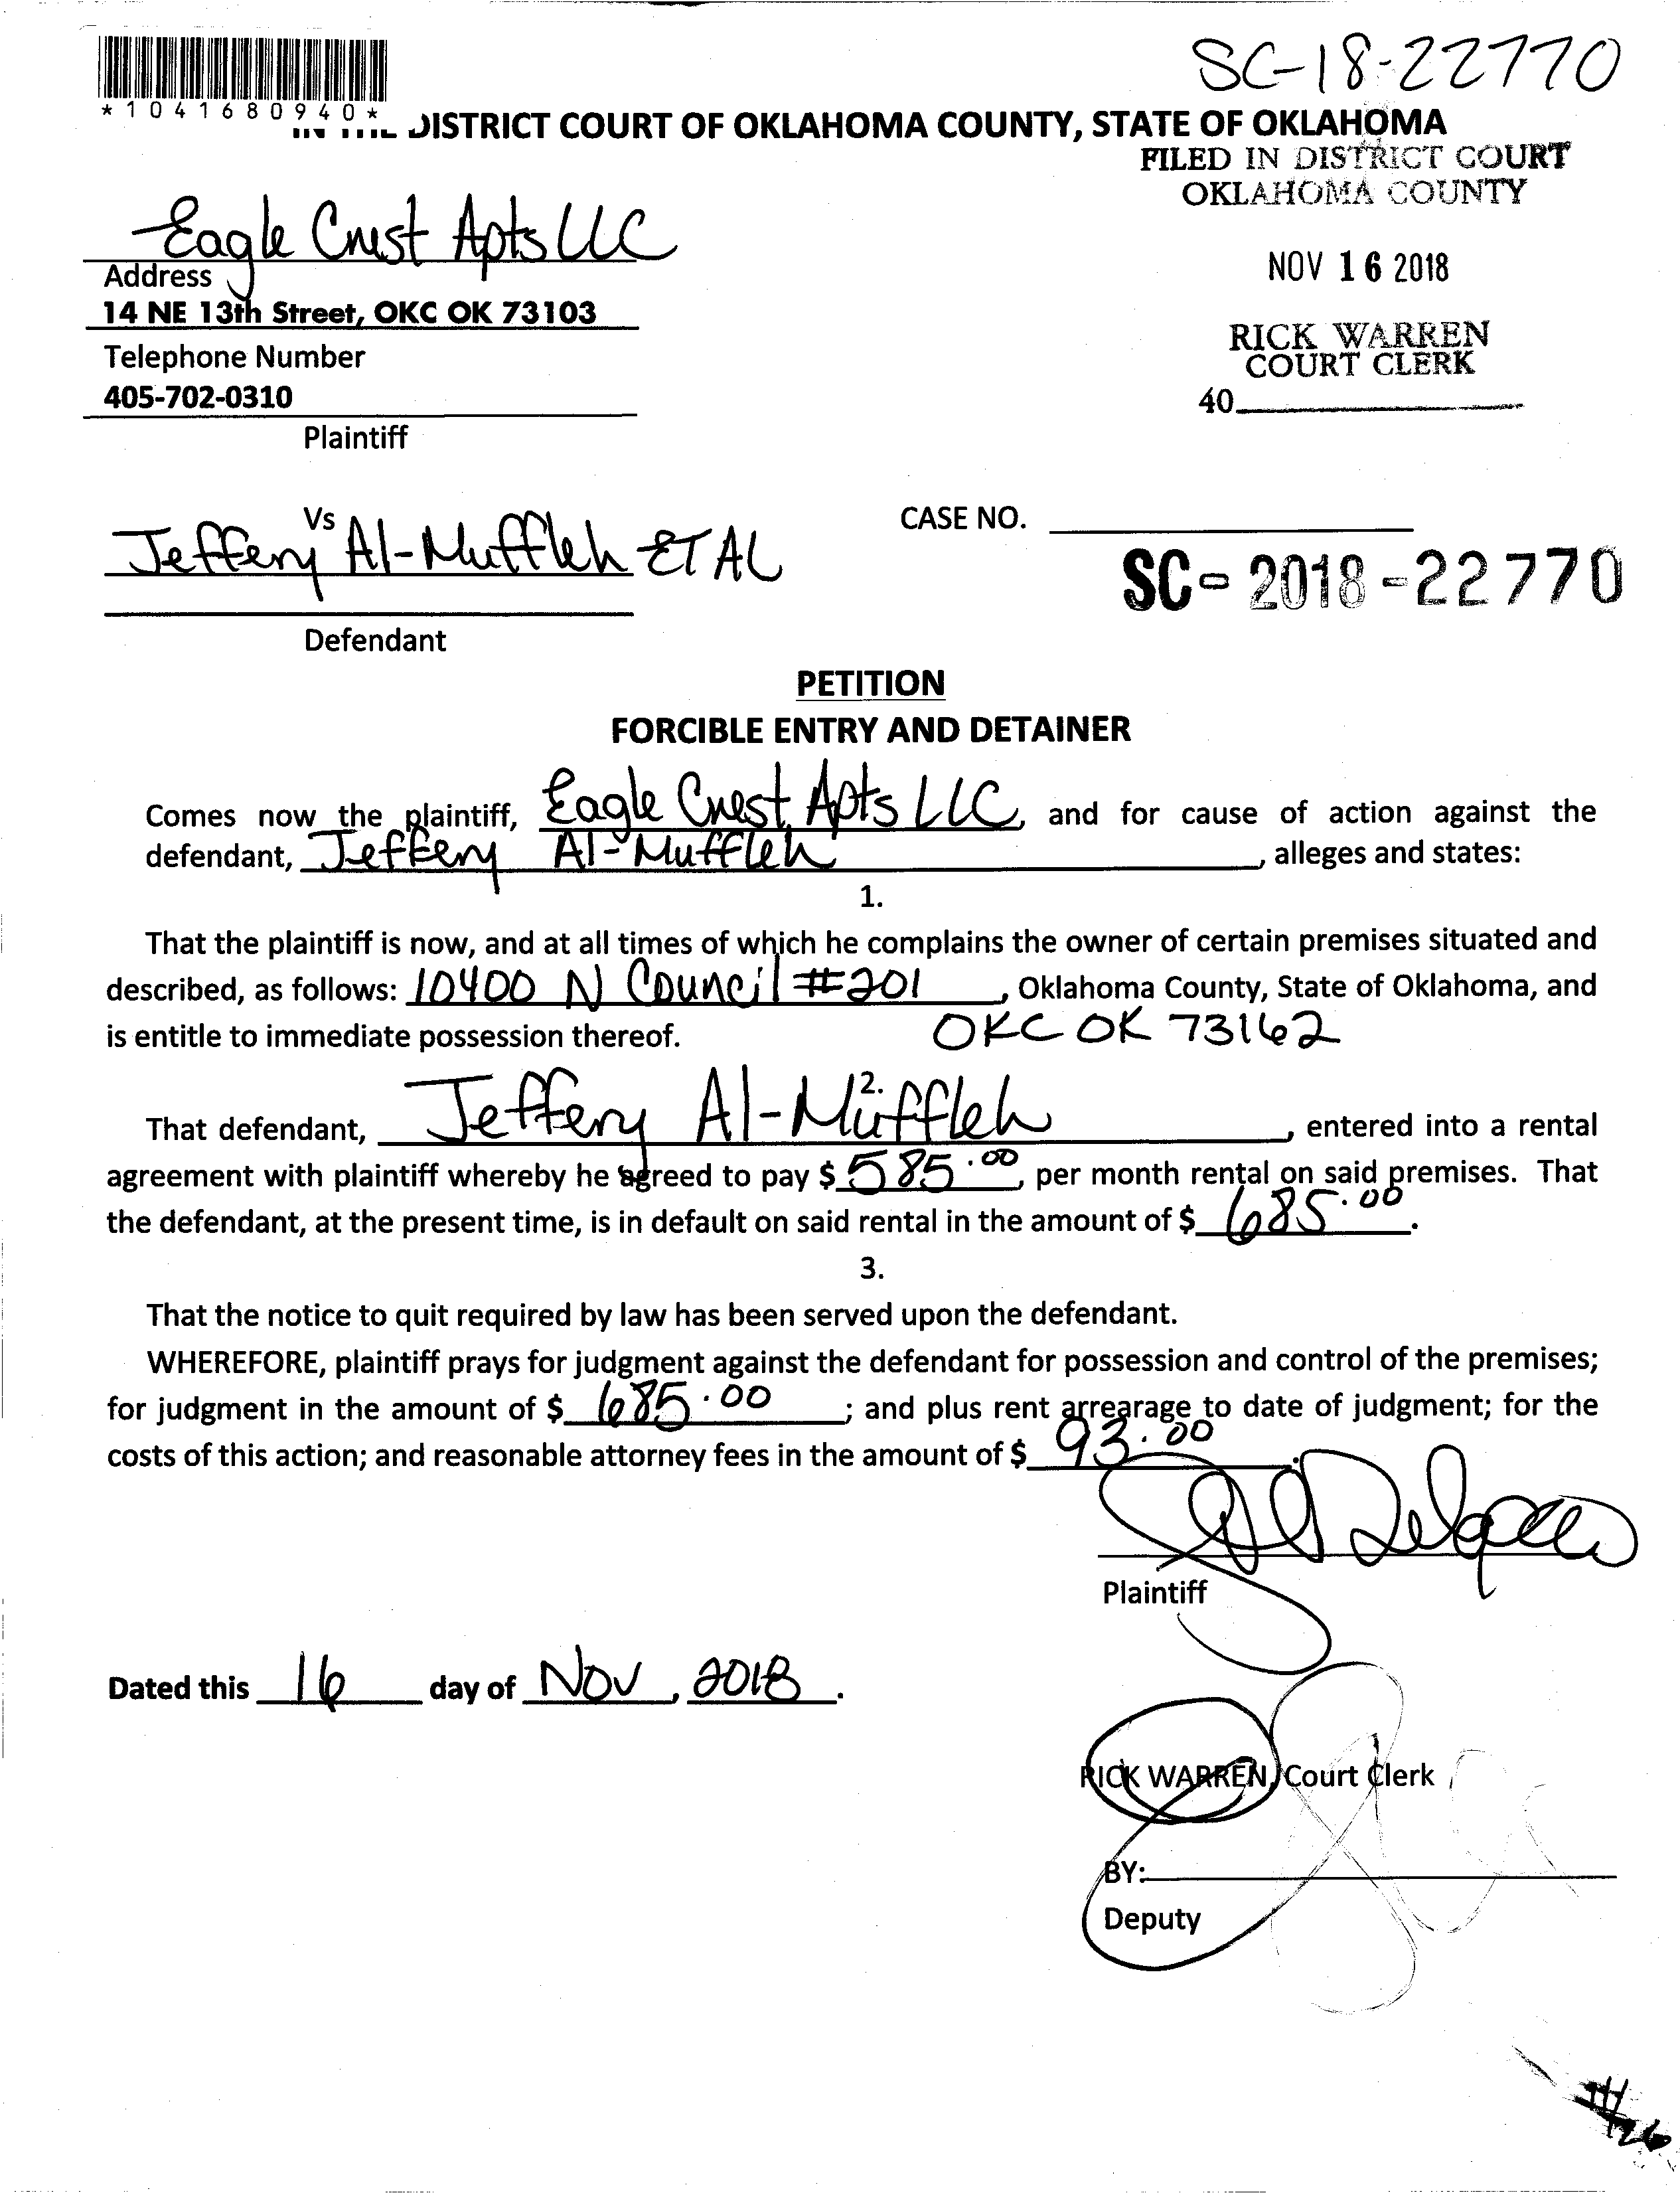 SC-18-22770
*1041680940*
DISTRICT COURT OF OKLAHOMA COUNTY, STATE OF OKLAHOMA
FILED IN DISTRICT COURT
OKLAHOMA COUNTY
Eagle Crest Apts LLC
Address
NOV 16 2018
14 NE 13th Street, OKC OK 73103
RICK WARREN
COURT CLERK
Telephone Number
405-702-0310
40
Plaintiff
Vs
CASE NO.
Jeffery Al-Muffleh ET AL
SC-2018-22770
Defendant
PETITION
FORCIBLE ENTRY AND DETAINER
Comes now the plaintiff, Eagle Crest Apts LLC, and for cause of action against the
defendant, Jeffery Al-Muffleh, alleges and states:
1.
That the plaintiff is now, and at all times of which he complains the owner of certain premises situated and
described, as follows: 10400 N Council #201, Oklahoma County, State of Oklahoma, and
is entitle to immediate possession thereof. OKC OK 73162
2.
That defendant, Jeffery Al-Muffleh, entered into a rental
agreement with plaintiff whereby he agreed to pay $ 585.00, per month rental on said premises. That
the defendant, at the present time, is in default on said rental in the amount of $ 685.00.
3.
That the notice to quit required by law has been served upon the defendant.
WHEREFORE, plaintiff prays for judgment against the defendant for possession and control of the premises;
for judgment in the amount of $ 685.00; and plus rent arrearage to date of judgment; for the
costs of this action; and reasonable attorney fees in the amount of $ 93.00.
Plaintiff
Dated this 16 day of Nov, 2018.
RICK WARREN, Court Clerk
BY:
Deputy
#26